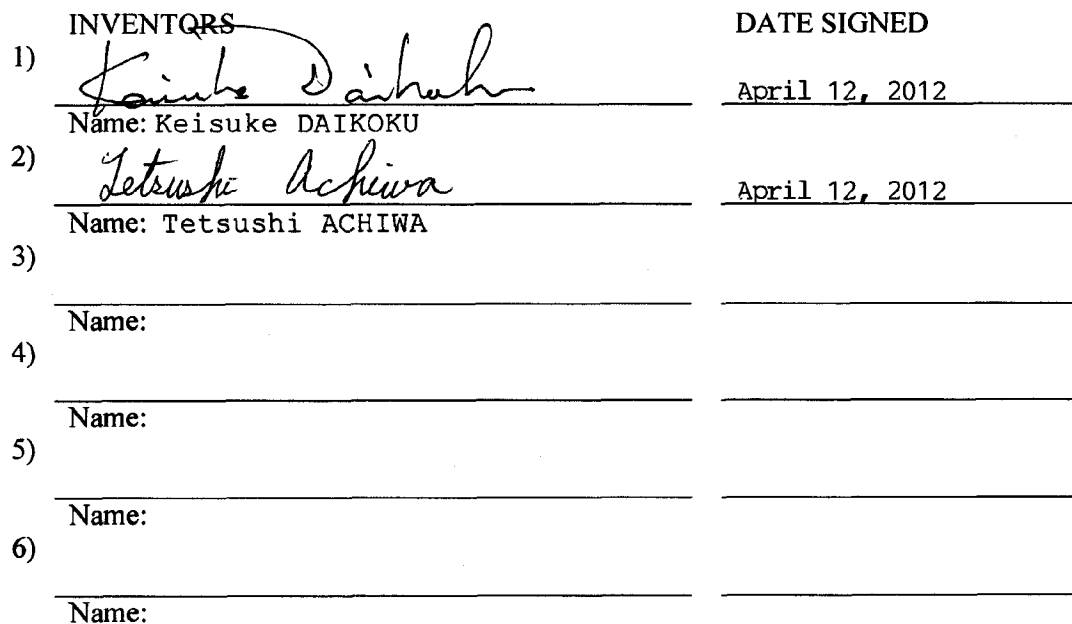 INVENTORS DATE SIGNED
1) Keisuke Daikoku April 12, 2012
Name: Keisuke DAIKOKU
2) Tetsushi Achiwa April 12, 2012
Name: Tetsushi ACHIWA
3)
Name:
4)
Name:
5)
Name:
6)
Name: